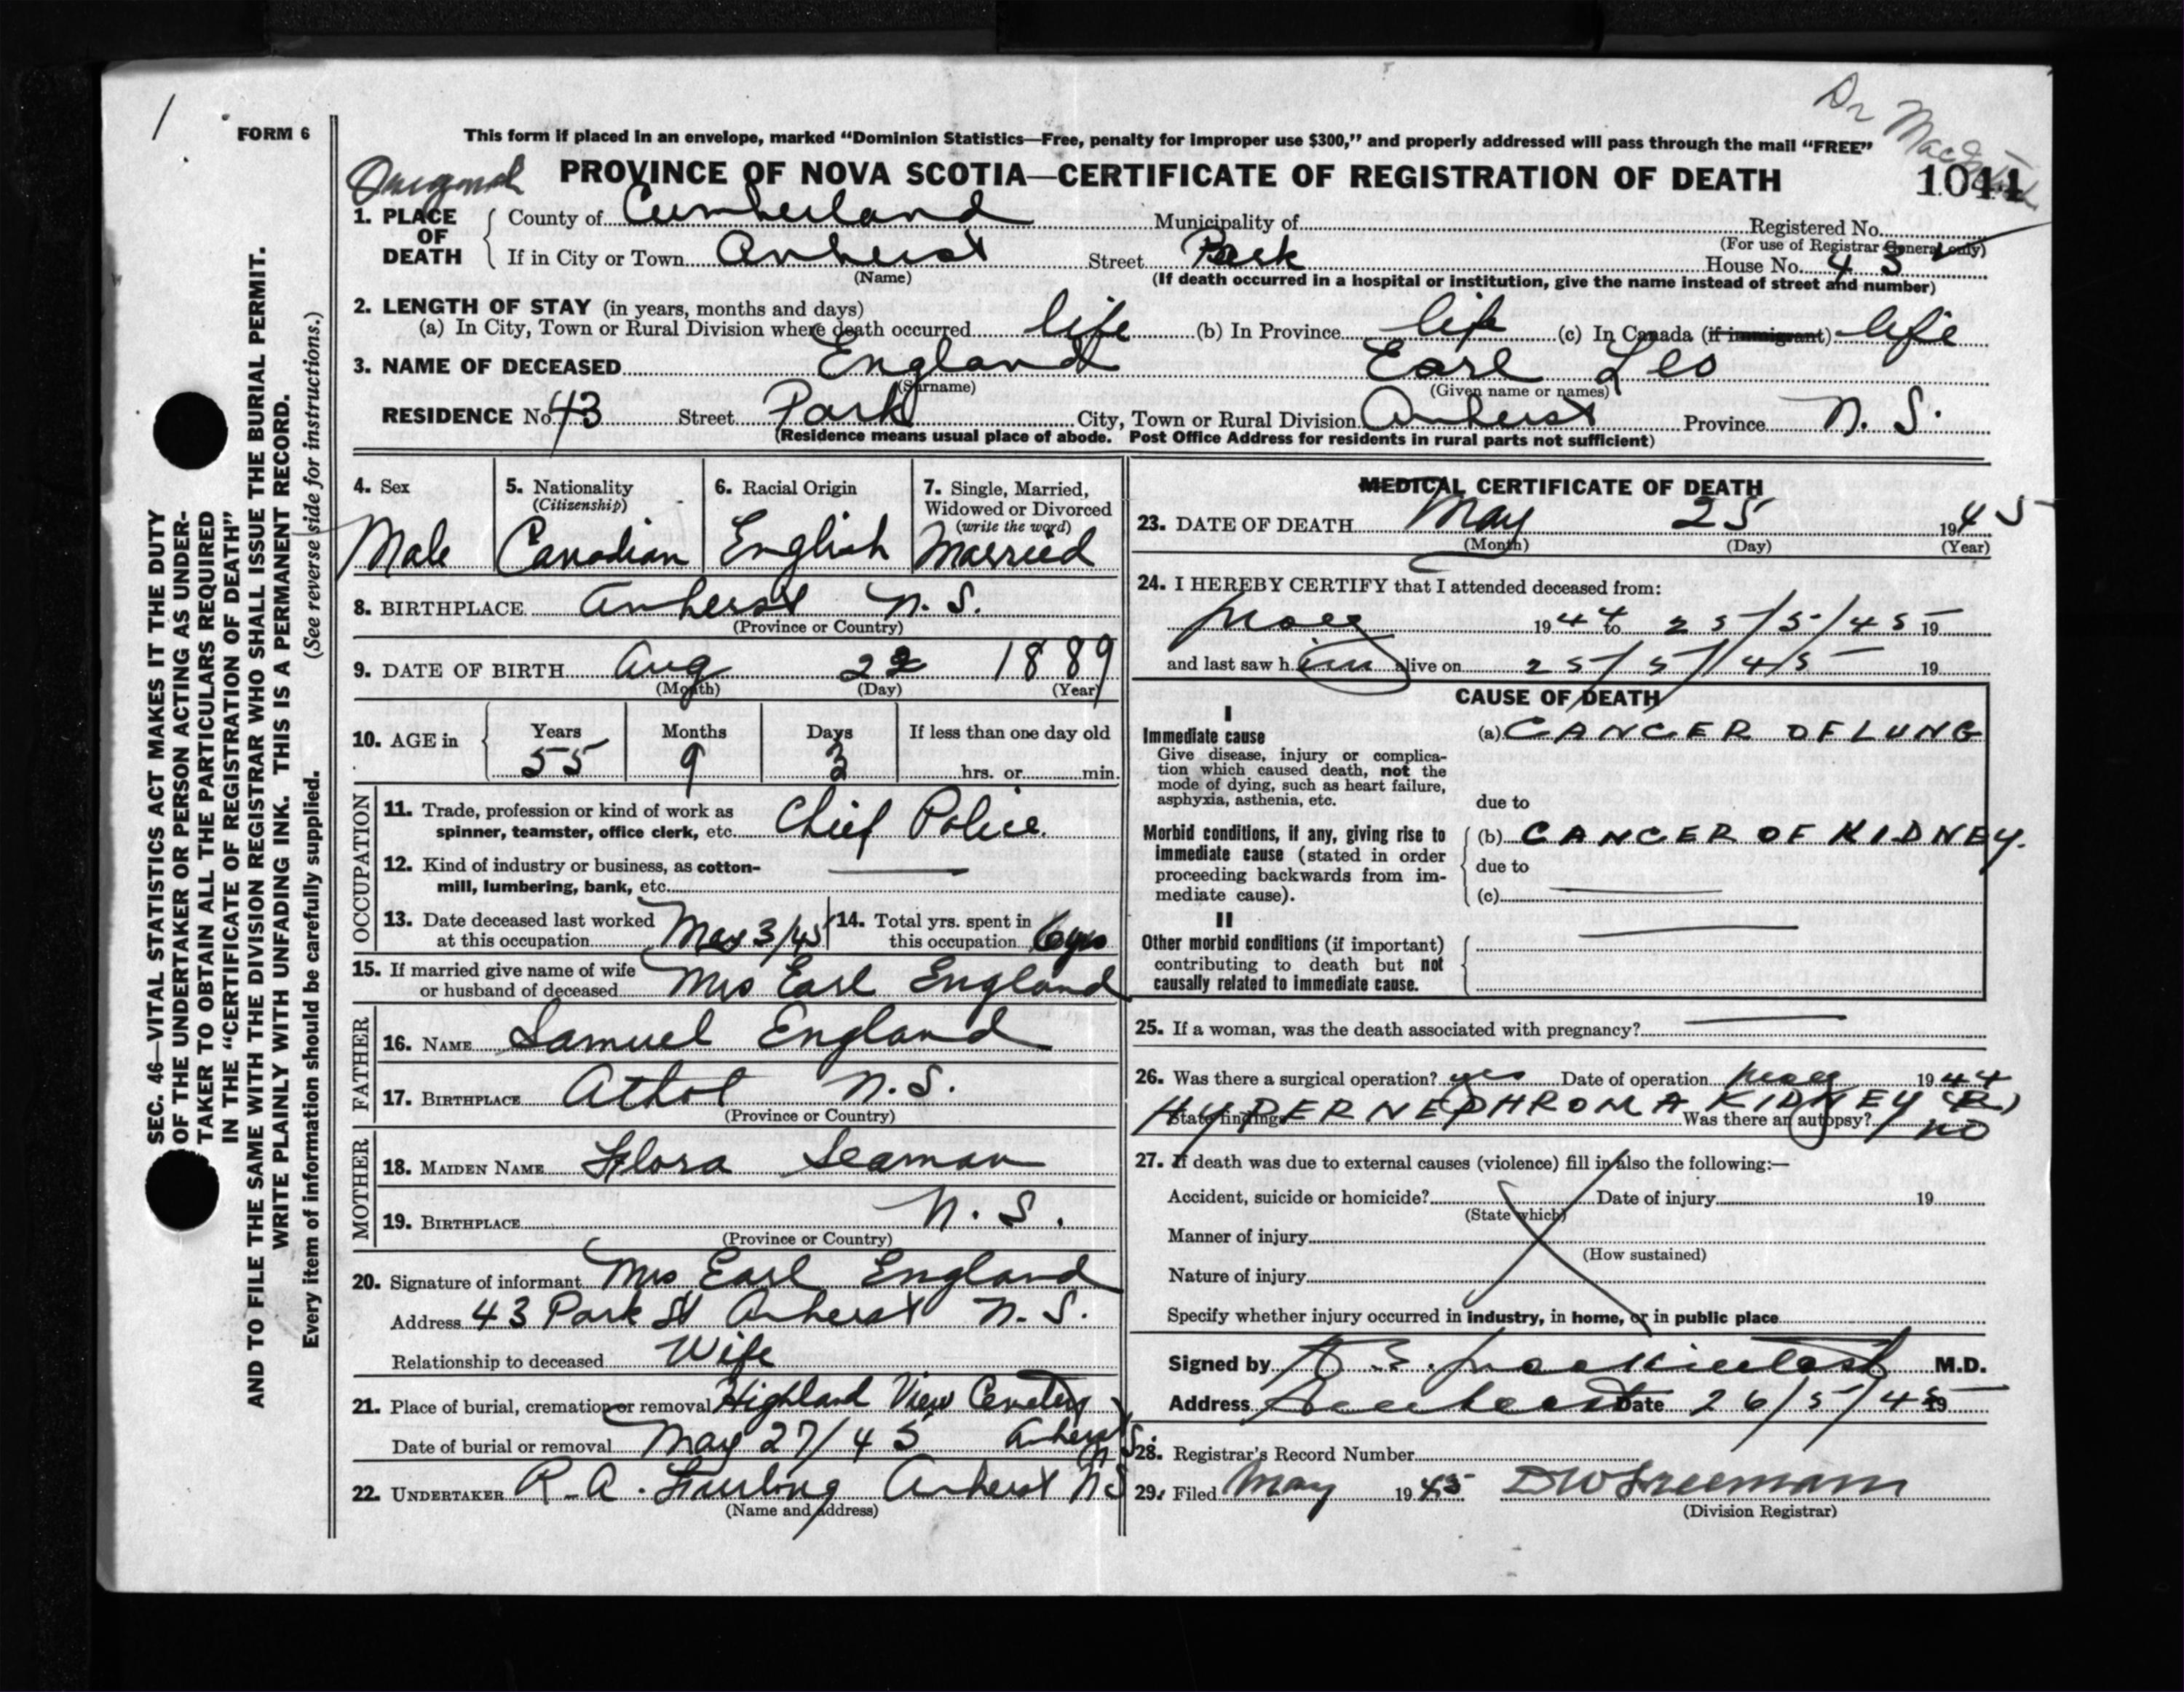 Dr
FORM 6
This form if placed in an envelope, marked “Dominion Statistics—Free, penalty for improper use $300,” and properly addressed will pass through the mail “FREE”
Original PROVINCE OF NOVA SCOTIA—CERTIFICATE OF REGISTRATION OF DEATH 1044
1. PLACE OF DEATH
County of Cumberland Municipality of Registered No.
(For use of Registrar General only)
If in City or Town Amherst Street Park House No. 43
(Name) (If death occurred in a hospital or institution, give the name instead of street and number)
2. LENGTH OF STAY (in years, months and days)
(a) In City, Town or Rural Division where death occurred life (b) In Province life (c) In Canada (if immigrant) life
3. NAME OF DECEASED England Earl Leo
(Surname) (Given name or names)
RESIDENCE No. 43 Street Park City, Town or Rural Division Amherst Province N. S.
(Residence means usual place of abode. Post Office Address for residents in rural parts not sufficient)
4. Sex
Male
5. Nationality
(Citizenship)
Canadian
6. Racial Origin
English
7. Single, Married,
Widowed or Divorced
(write the word)
Married
8. BIRTHPLACE Amherst N. S.
(Province or Country)
9. DATE OF BIRTH Aug 22 1889
(Month) (Day) (Year)
10. AGE in Years Months Days If less than one day old
55 9 3 hrs. or min.
OCCUPATION
11. Trade, profession or kind of work as
spinner, teamster, office clerk, etc. Chief Police
12. Kind of industry or business, as cotton-
mill, lumbering, bank, etc.
13. Date deceased last worked
at this occupation May 3/45
14. Total yrs. spent in
this occupation 6 yrs
15. If married give name of wife
or husband of deceased Mrs Earl England
FATHER
16. NAME Samuel England
17. BIRTHPLACE Athol N. S.
(Province or Country)
MOTHER
18. MAIDEN NAME Flora Seaman
19. BIRTHPLACE N. S.
(Province or Country)
20. Signature of informant Mrs Earl England
Address 43 Park St Amherst N. S.
Relationship to deceased Wife
21. Place of burial, cremation or removal Highland View Cemetery
Date of burial or removal May 27/45 Amherst N.S.
22. UNDERTAKER R. A. Furlong Amherst NS
(Name and address)
MEDICAL CERTIFICATE OF DEATH
23. DATE OF DEATH May 25 1945
(Month) (Day) (Year)
24. I HEREBY CERTIFY that I attended deceased from:
May 1944 to 25/5/45 19
and last saw h im alive on 25/5/45 19
CAUSE OF DEATH
I
Immediate cause
Give disease, injury or complica-
tion which caused death, not the
mode of dying, such as heart failure,
asphyxia, asthenia, etc.
(a) CANCER OF LUNG
due to
Morbid conditions, if any, giving rise to
immediate cause (stated in order
proceeding backwards from im-
mediate cause).
(b) CANCER OF KIDNEY.
due to
(c)
II
Other morbid conditions (if important)
contributing to death but not
causally related to immediate cause.
25. If a woman, was the death associated with pregnancy?
26. Was there a surgical operation? yes Date of operation May 1944
HYPERNEPHROMA KIDNEY (R)
State findings Was there an autopsy? no
27. If death was due to external causes (violence) fill in also the following:—
Accident, suicide or homicide? Date of injury 19
(State which)
Manner of injury
(How sustained)
Nature of injury
Specify whether injury occurred in industry, in home, or in public place
Signed by Mackintosh M.D.
Address Amherst Date 26/5/45 19
28. Registrar’s Record Number
29. Filed May 1945 D W Freeman
(Division Registrar)
SEC. 46—VITAL STATISTICS ACT MAKES IT THE DUTY
OF THE UNDERTAKER OR PERSON ACTING AS UNDER-
TAKER TO OBTAIN ALL THE PARTICULARS REQUIRED
IN THE “CERTIFICATE OF REGISTRATION OF DEATH”
AND TO FILE THE SAME WITH THE DIVISION REGISTRAR WHO SHALL ISSUE THE BURIAL PERMIT.
WRITE PLAINLY WITH UNFADING INK. THIS IS A PERMANENT RECORD.
Every item of information should be carefully supplied. (See reverse side for instructions.)